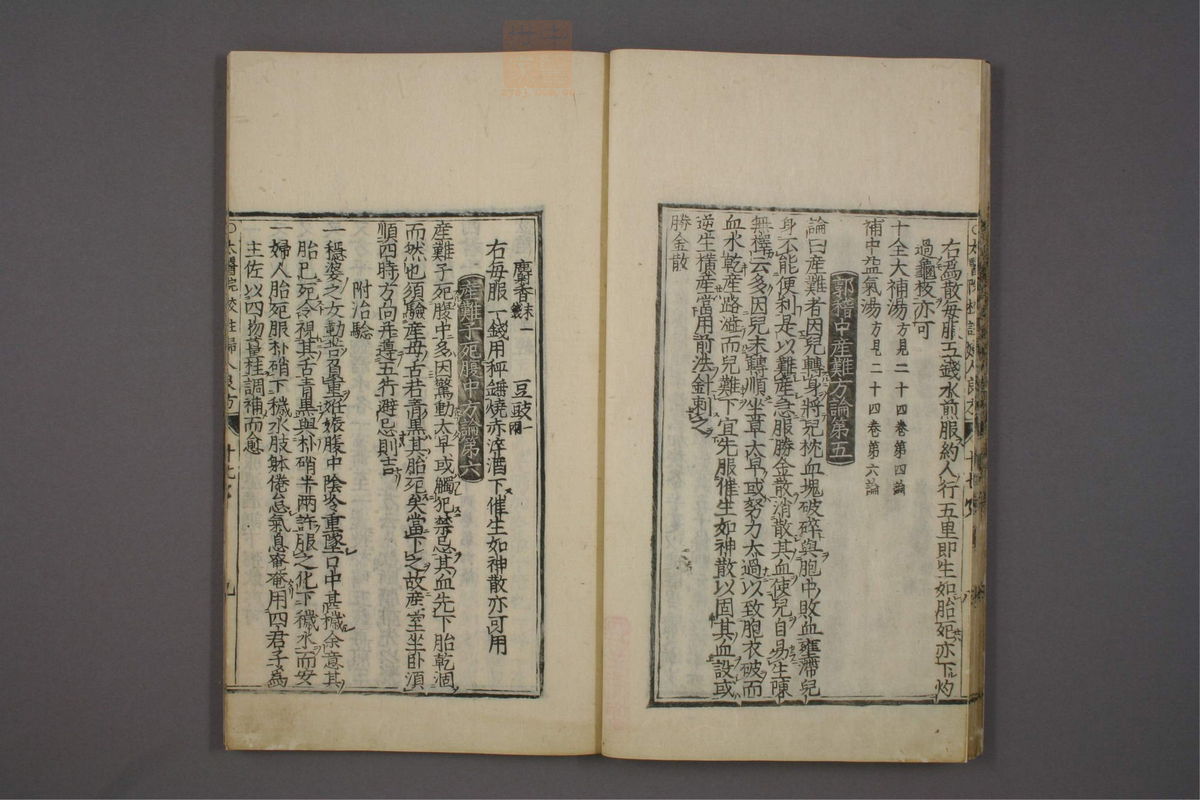 右爲散每服五錢水煎服約人行五里即生如胎死亦下灼
過龜板亦可
十全大補湯方見二十四卷第四論
補中益氣湯方見二十四卷第六論
郭稽中産難方論第五
論曰産難者因兒轉身將兒枕血塊破碎與胞中敗血壅滯兒
身不能便利是以難産急服勝金散消散其血使兒自易生陳
無擇云多因兒未轉順坐草太早或努力太過以致胞衣破而
血水乾産路澁而兒難下宜先服催生如神散以固其血設或
逆生橫産當用前法針刺之
勝金散
麝香末一錢 豆豉一兩
右每服一錢用秤錘燒赤淬酒下催生如神散亦可用
産難子死腹中方論第六
産難子死腹中多因驚動太早或觸犯禁忌其血先下胎乾涸
而然也須驗産母舌若青黑其胎死矣當下之故産室坐卧須
順四時方向并遵五行避忌則吉
附治驗
一穩婆之女勤苦負重妊娠腹中陰冷重墜口中甚穢余意其
胎已死令視其舌青黑與朴硝半兩許服之化下穢水而安
一婦人胎死服朴硝下穢水肢躰倦怠氣息奄奄用四君子爲
主佐以四物薑桂調補而愈
○太醫院校註婦人良方
九